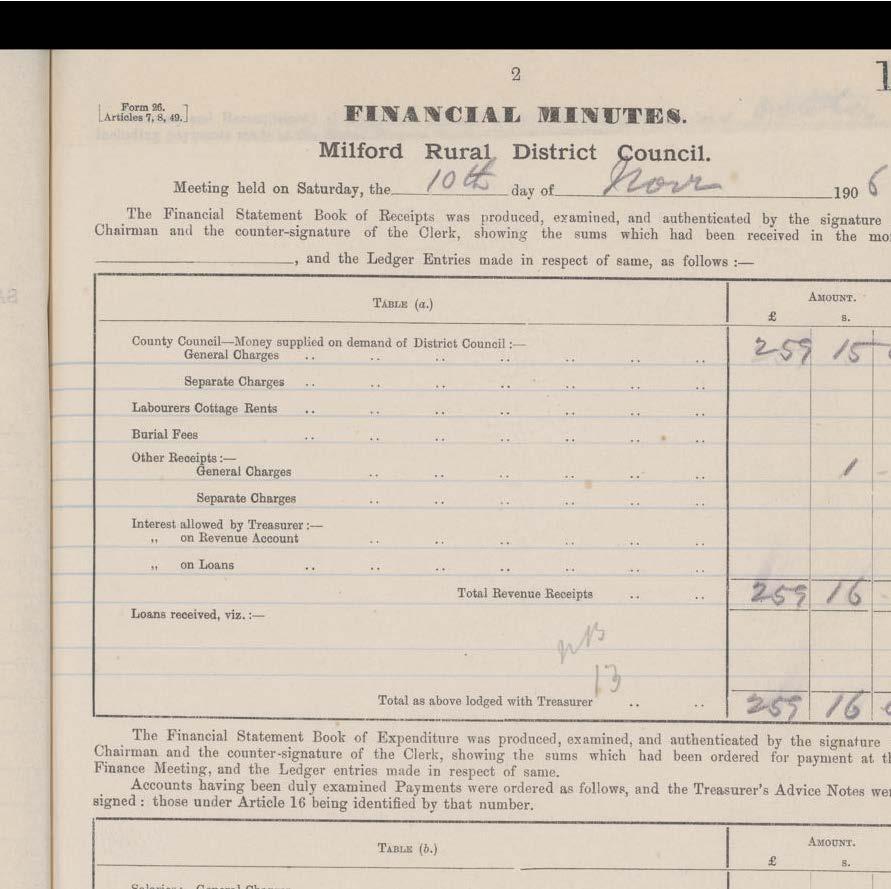 2
1
Form 26.
[Articles 7, 8, 49.]
FINANCIAL MINUTES.
Milford Rural District Council.
Meeting held on Saturday, the 10th day of Novr 1906
The Financial Statement Book of Receipts was produced, examined, and authenticated by the signature
Chairman and the counter-signature of the Clerk, showing the sums which had been received in the mo
, and the Ledger Entries made in respect of same, as follows :—
TABLE (a.) AMOUNT.
£ s.
County Council—Money supplied on demand of District Council :—
General Charges .. .. .. .. .. .. .. 259 15
Separate Charges .. .. .. .. .. .. ..
Labourers Cottage Rents .. .. .. .. .. .. ..
Burial Fees .. .. .. .. .. .. ..
Other Receipts :—
General Charges .. .. .. .. .. .. 1 -
Separate Charges .. .. .. .. .. ..
Interest allowed by Treasurer :—
„ on Revenue Account .. .. .. .. .. ..
„ on Loans .. .. .. .. .. .. ..
Total Revenue Receipts .. .. 259 16
Loans received, viz. :—
13
Total as above lodged with Treasurer .. .. 259 16
The Financial Statement Book of Expenditure was produced, examined, and authenticated by the signature
Chairman and the counter-signature of the Clerk, showing the sums which had been ordered for payment at th
Finance Meeting, and the Ledger entries made in respect of same.
Accounts having been duly examined Payments were ordered as follows, and the Treasurer's Advice Notes wer
signed : those under Article 16 being identified by that number.
TABLE (b.) AMOUNT.
£ s.